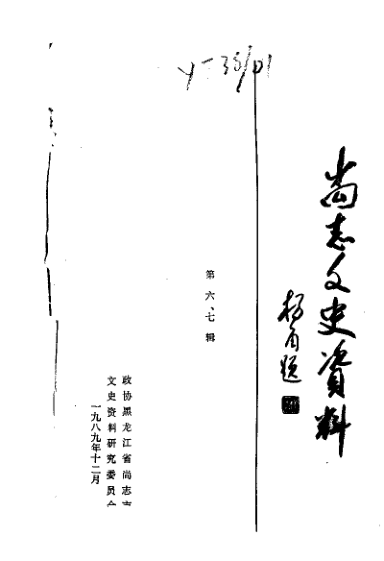 尚志文史資料
杨角题
第六、七辑
政协黑龙江省尚志市
文史资料研究委员会
一九八九年十二月